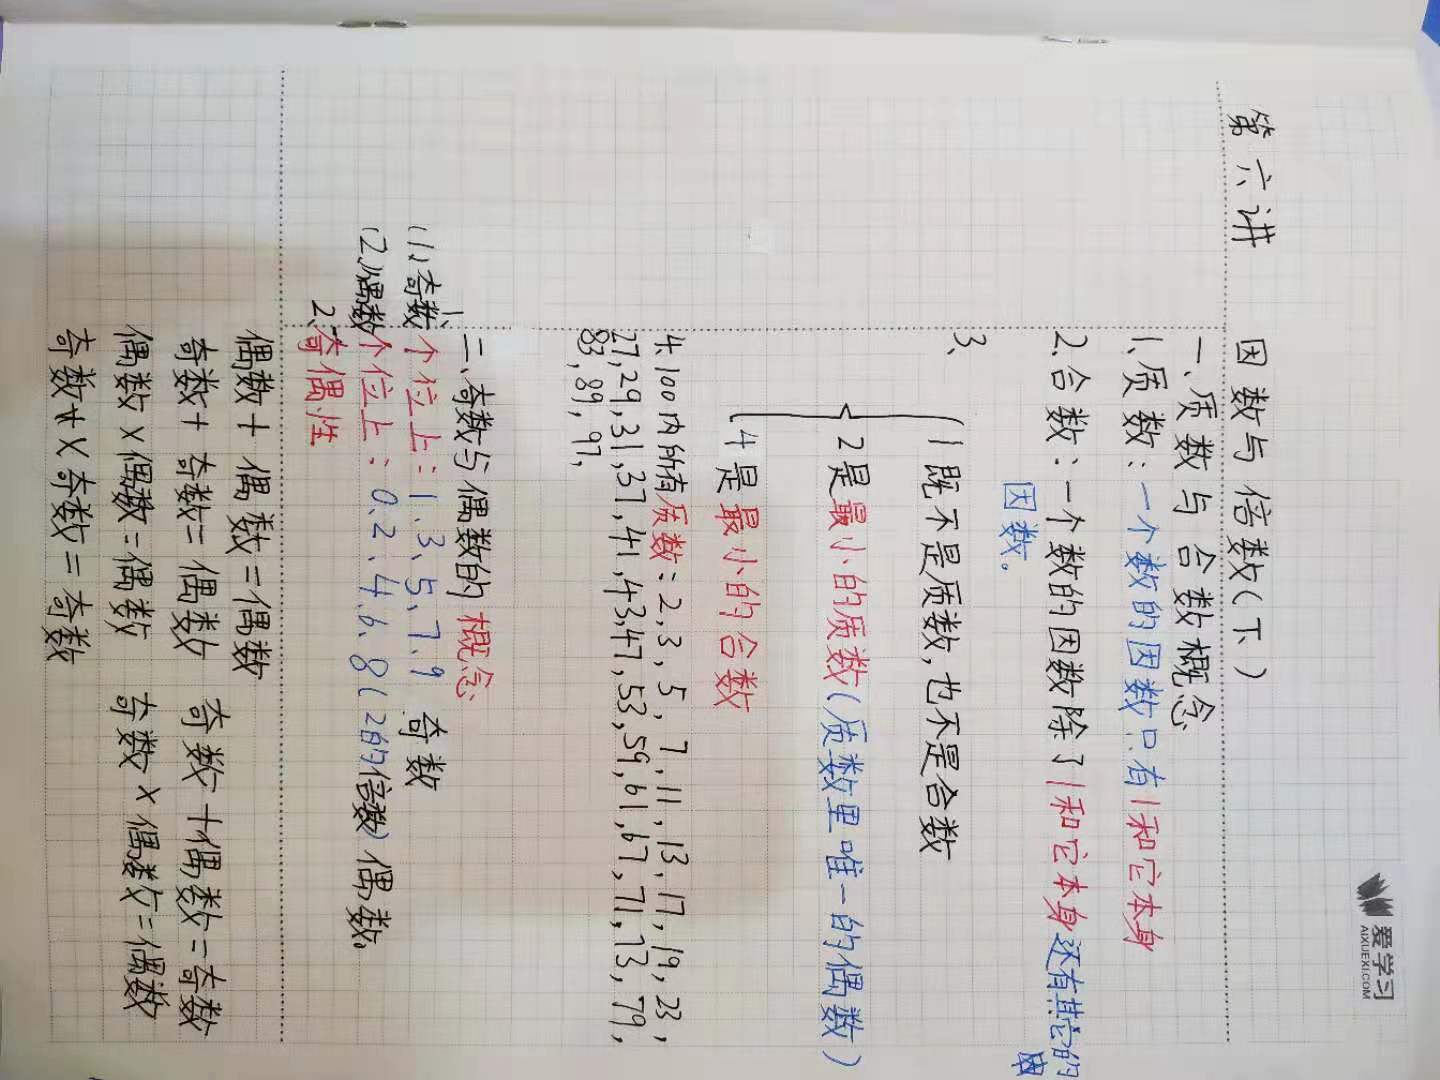 爱学习
AIXUEXI.COM
第六讲
因数与倍数(下)
一、质数与合数概念
1、质数:一个数的因数只有1和它本身
2、合数:一个数的因数除了1和它本身还有其它的
因数。
3、
1既不是质数,也不是合数
2是最小的质数(质数里唯一的偶数)
4是最小的合数
4、100内所有质数:2,3,5,7,11,13,17,19,23,
27,29,31,37,41,43,47,53,59,61,67,71,73,79,
83,89,97,
二、奇数与偶数的概念
1、
(1)、奇数个位上:1、3、5、7、9 奇数
(2)、偶数个位上:0、2、4、6、8(2的倍数)偶数。
2、奇偶性
偶数+偶数=偶数
奇数+奇数=偶数 奇数+偶数=奇数
偶数×偶数=偶数 奇数×偶数=偶数
奇数×奇数=奇数